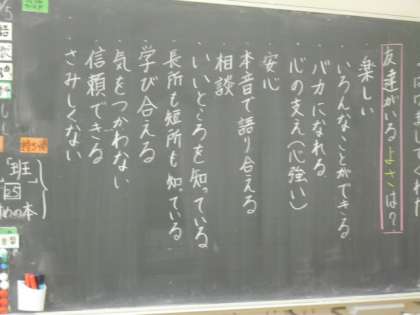 友達がいるよさは？
楽しい
・いろんなことができる
・バカになれる
・心の支え(心強い)
・安心
・本音で語り合える
・相談
・いいところを知っている
・長所も短所も知っている
・学び合える
・気をつかわない
・信頼できる
・さみしくない
「班」
25
の本